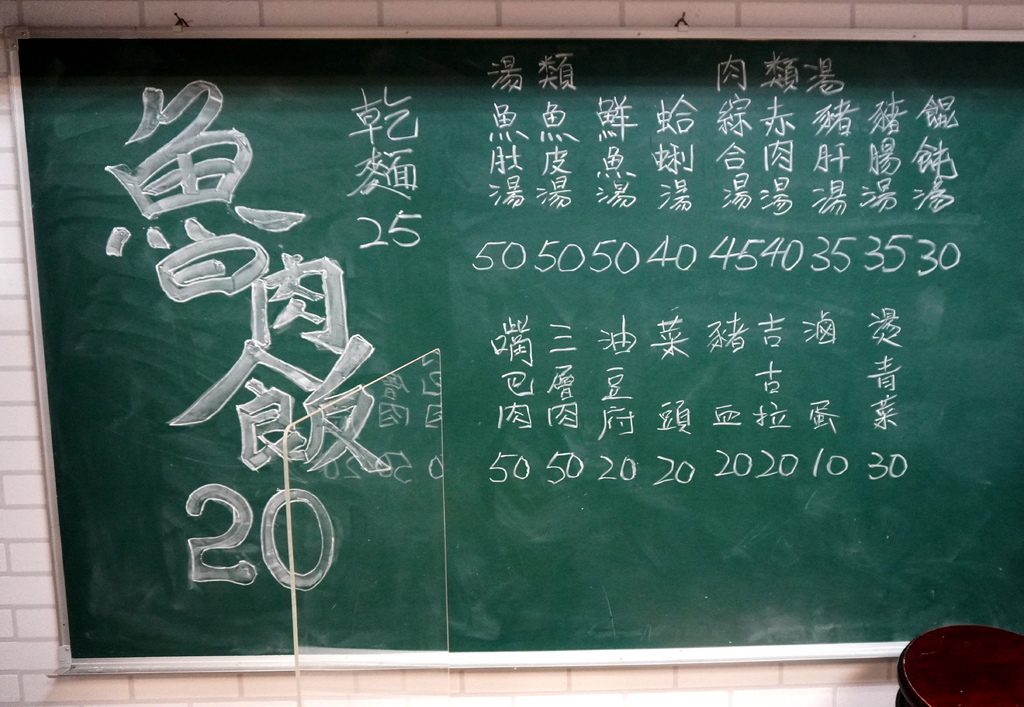 魯肉飯
20
乾麵
25
湯類
魚肚湯
50
魚皮湯
50
鮮魚湯
50
蛤蜊湯
40
肉類湯
綜合湯
45
赤肉湯
40
豬肝湯
35
豬腸湯
35
餛飩湯
30
嘴巴肉
50
三層肉
50
油豆府
20
菜頭
20
豬血
20
吉古拉
20
滷蛋
10
燙青菜
30